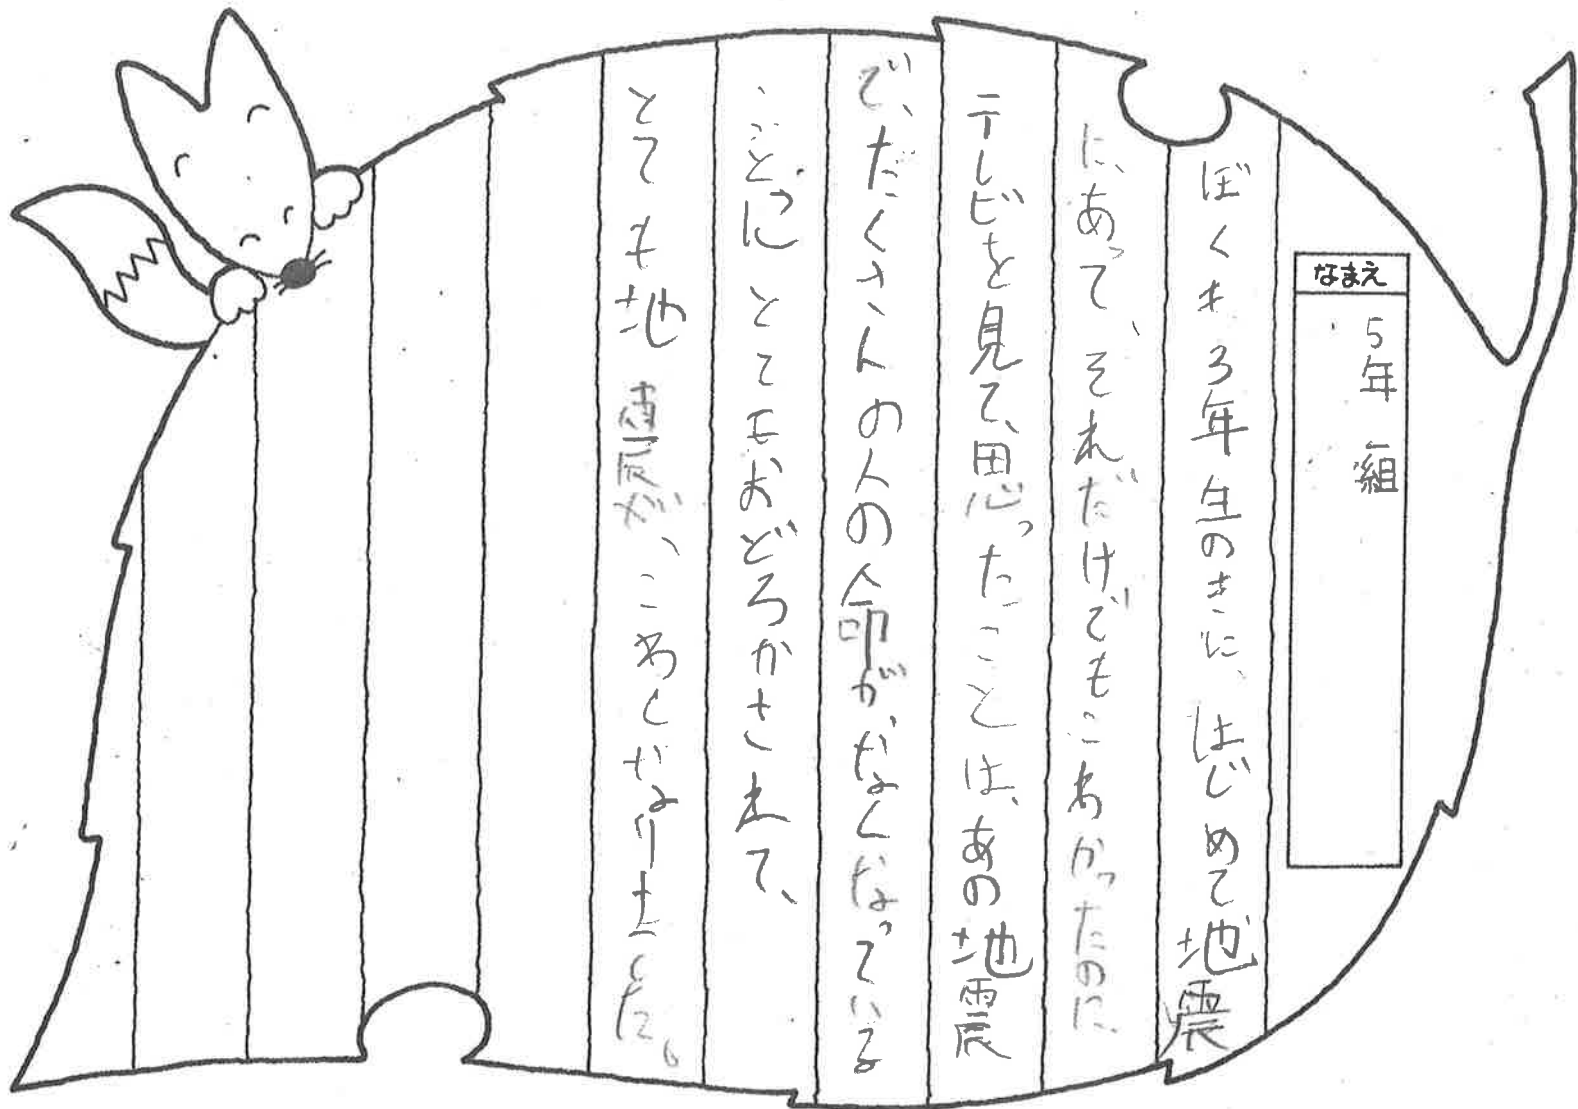 なまえ
5年 組
ぼくも3年生のきに、はじめて地震
に、あって、それだけでもこわかったのに、
テレビを見て、思ったことは、あの地震
で、たくさんの人の命が、なくなっている
ことに とてもおどろかされて、
とても地震が、こわくなりました。